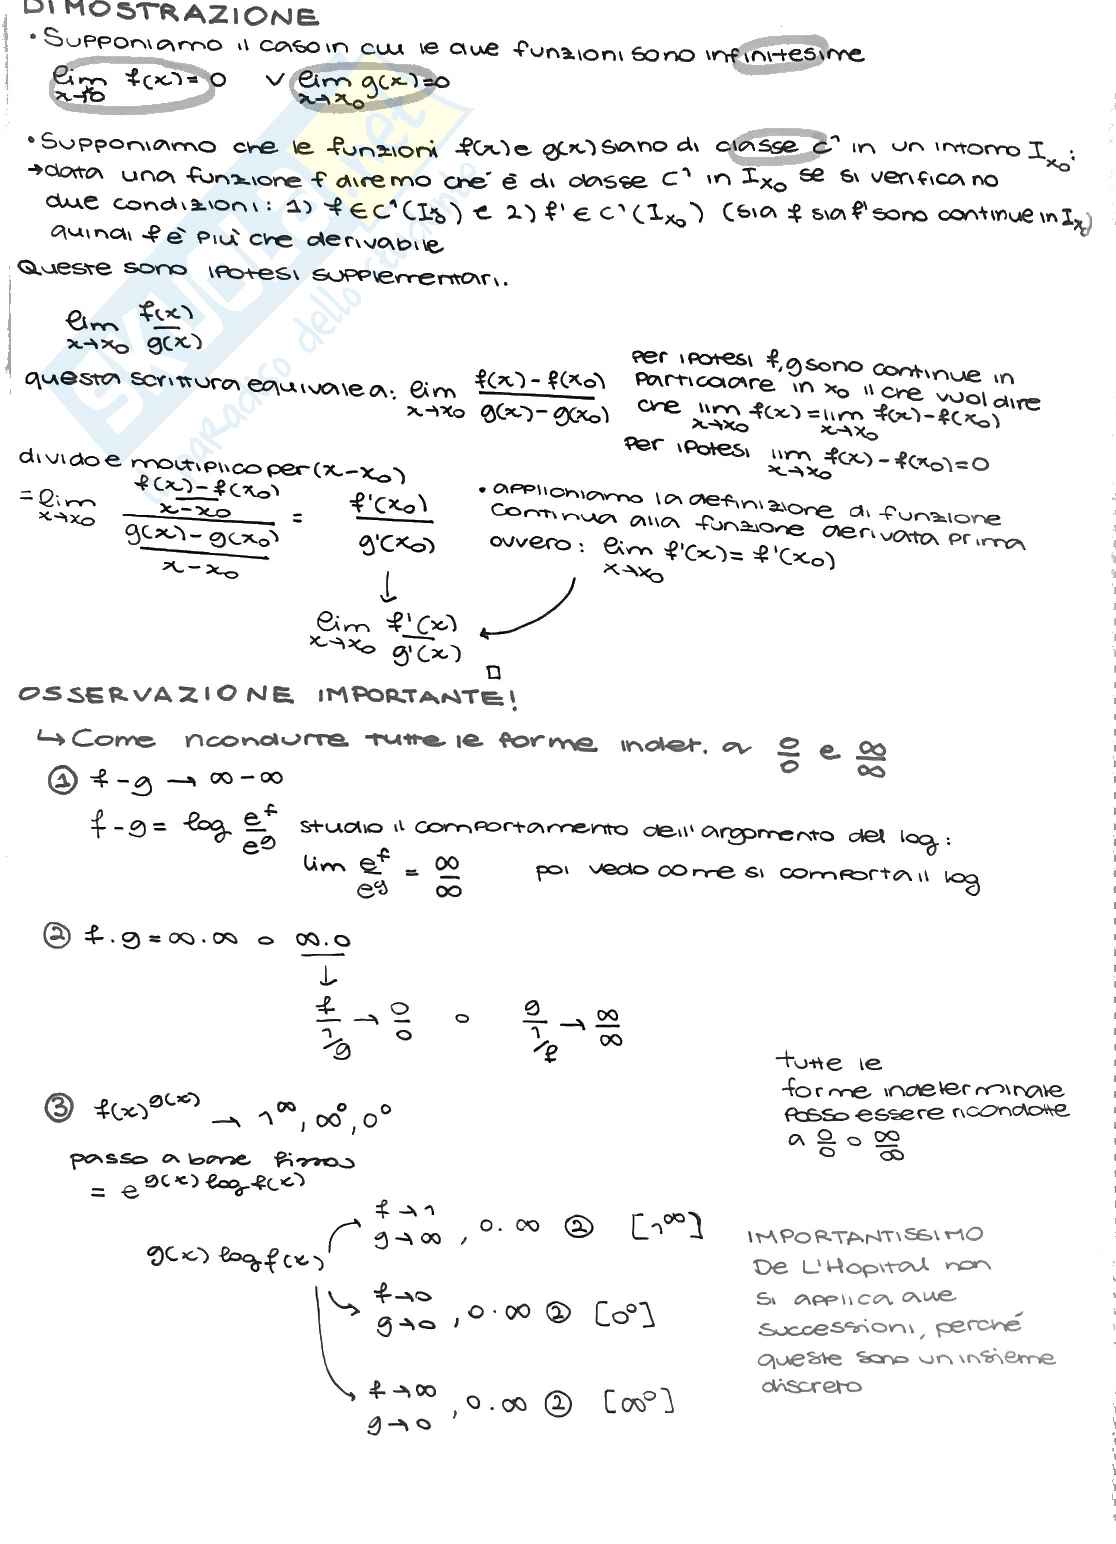 DIMOSTRAZIONE
• Supponiamo il caso in cui le due funzioni sono infinitesime
lim x→x0 f(x)=0 ∨ lim x→x0 g(x)=0
• Supponiamo che le funzioni f(x) e g(x) siano di classe C¹ in un intorno Ix0:
→ data una funzione f diremo che è di classe C¹ in Ix0 se si verificano
due condizioni: 1) f∈C¹(Iδ) e 2) f'∈C¹(Ix0) (sia f sia f' sono continue in Ix0)
quindi f è più che derivabile
Queste sono ipotesi supplementari.
lim x→x0 f(x)/g(x)
questa scrittura equivale a: lim x→x0 (f(x)-f(x0))/(g(x)-g(x0))
per ipotesi f,g sono continue in
particolare in x0 il che vuol dire
che lim x→x0 f(x)=lim x→x0 f(x)-f(x0)
per ipotesi lim x→x0 f(x)-f(x0)=0
divido e moltiplico per (x-x0)
= lim x→x0 ((f(x)-f(x0))/(x-x0))/((g(x)-g(x0))/(x-x0)) = f'(x0)/g'(x0)
• applichiamo la definizione di funzione
continua alla funzione derivata prima
ovvero: lim x→x0 f'(x)=f'(x0)
↓
lim x→x0 f'(x)/g'(x)
□
OSSERVAZIONE IMPORTANTE!
↳ Come ricondurre tutte le forme indet. a 0/0 e ∞/∞
① f-g → ∞-∞
f-g = log e^f/e^g studio il comportamento dell'argomento del log:
lim e^f/e^g = ∞/∞ poi vedo come si comporta il log
② f·g = ∞·∞ o ∞·0
↓
f/(1/g) → 0/0 o g/(1/f) → ∞/∞
tutte le
forme indeterminate
posso essere ricondotte
a 0/0 o ∞/∞
③ f(x)^g(x) → 1^∞, ∞^0, 0^0
passo a base fissa
= e^(g(x) log f(x))
g(x) log f(x)
f→1
g→∞ , 0·∞ ② [1^∞]
f→0
g→0 , 0·∞ ② [0^0]
f→∞
g→0 , 0·∞ ② [∞^0]
IMPORTANTISSIMO
De L'Hopital non
si applica alle
successioni, perché
queste sono un insieme
discreto